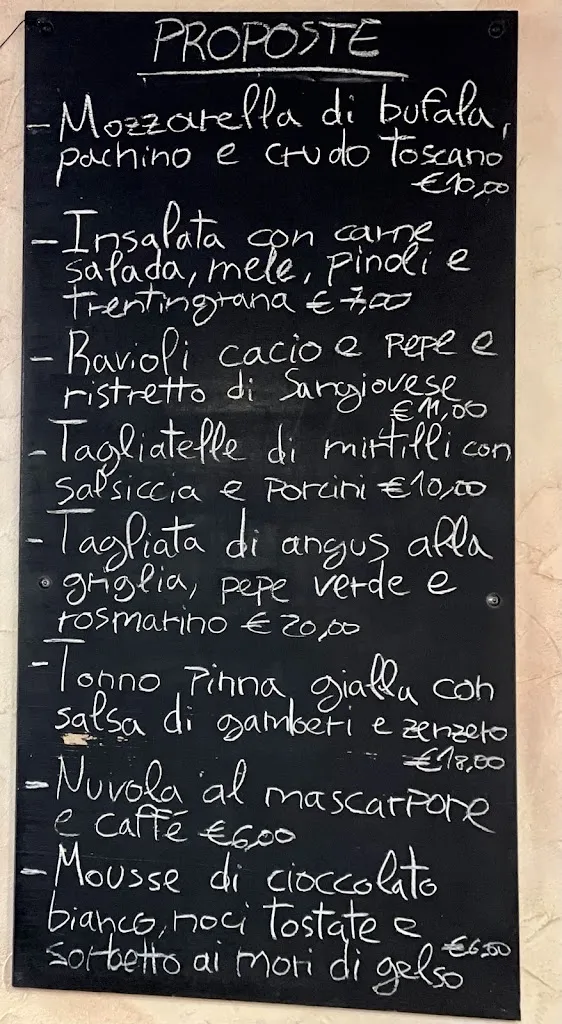 PROPOSTE
- Mozzarella di bufala,
pachino e crudo Toscano
€10,00
- Insalata con carne
salada, mele, pinoli e
trentingrana €7,00
- Ravioli cacio e pepe e
ristretto di Sangiovese
€11,00
- Tagliatelle di mirtilli con
salsiccia e porcini €10,00
- Tagliata di angus alla
griglia, pepe verde e
rosmarino €20,00
- Tonno Pinna gialla con
salsa di gamberi e zenzero
€18,00
- Nuvola al mascarpone
e caffé €6,00
- Mousse di cioccolato
bianco, noci tostate e
sorbetto ai mori di gelso €6,00